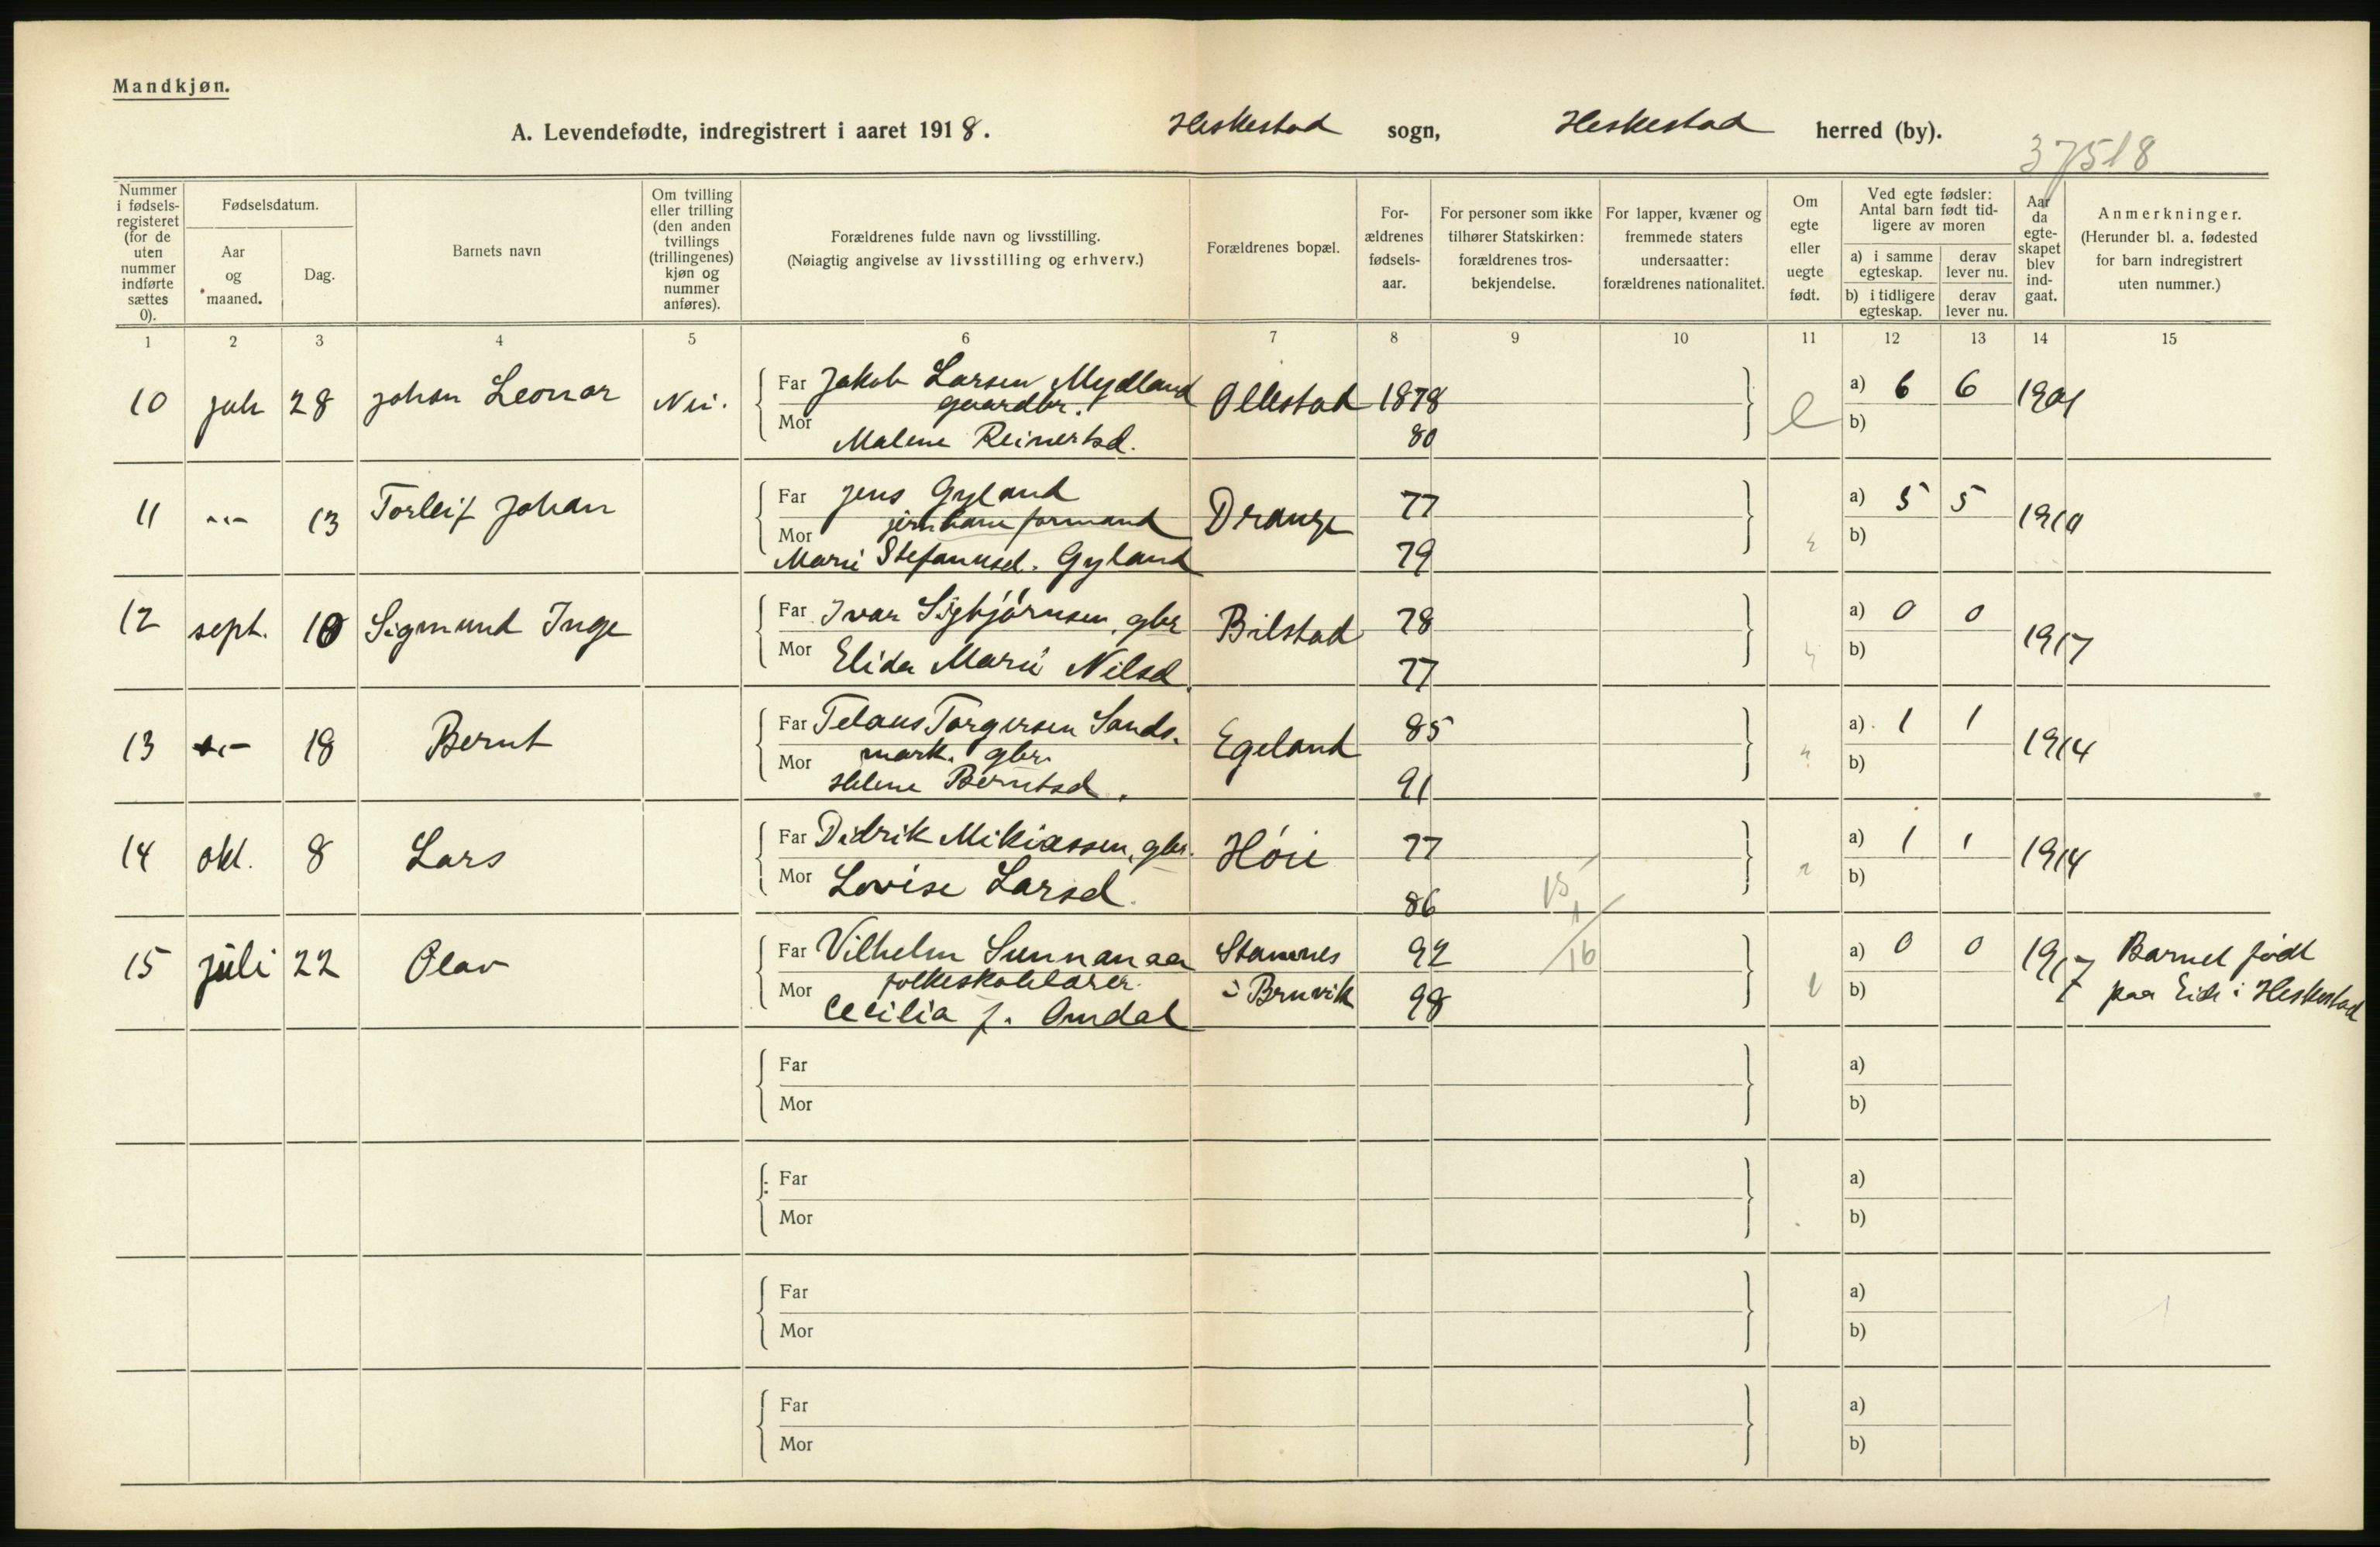 Mandkjøn.
A. Levendefødte, indregistrert i aaret 1918. Heskestad sogn, Heskestad herred (by).
37518
Nummer i fødsels-registeret (for de uten nummer indførte sættes 0).
Fødselsdatum.
Aar og maaned.
Dag.
Barnets navn
Om tvilling eller trilling (den anden tvillings (trillingenes) kjøn og nummer anføres).
Forældrenes fulde navn og livsstilling.
(Nøiagtig angivelse av livsstilling og erhverv.)
Forældrenes bopæl.
For-ældrenes fødsels-aar.
For personer som ikke tilhører Statskirken: forældrenes tros-bekjendelse.
For lapper, kvæner og fremmede staters undersaatter: forældrenes nationalitet.
Om egte eller uegte født.
Ved egte fødsler: Antal barn født tid-ligere av moren
a) i samme egteskap.
derav lever nu.
b) i tidligere egteskap.
derav lever nu.
Aar da egte-skapet blev ind-gaat.
Anmerkninger.
(Herunder bl. a. fødested for barn indregistrert uten nummer.)
1 2 3 4 5 6 7 8 9 10 11 12 13 14 15
10 juli 28 Johan Leonar Nei. Far Jakob Larsen Mydland Ollestad 1878 e a) 6 6 1901
gaardbr.
Mor Malene Reinertsd. 80 b)
11 -"- 13 Torleif Johan Far Jens Gyland Drange 77 a) 5 5 1910
jernbane formand
Mor Marie Stefanusd. Gyland 79 b)
12 sept. 10 Sigmund Inge Far Ivar Sigbjørnsen, gbr Bilstad 78 a) 0 0 1917
Mor Elida Marie Nilsd. 77 b)
13 -"- 18 Bernt Far Telaus Torgersen Sands- Egeland 85 a) 1 1 1914
mark. gbr.
Mor Helene Berntsd. 91 b)
14 okt. 8 Lars Far Didrik Mikiassen, gbr. Høie 77 a) 1 1 1914
Mor Lovise Larsd. 86 b)
15 juli 22 Olav Far Vilhelm Sunnanaa Stamnes 92 a) 0 0 1917 Barnet født
folkeskolelærer
Mor Cecilia J. Omdal i Bruvik 98 b) paa Eide i Heskestad
15
1
16
Far a)
Mor b)
Far a)
Mor b)
Far a)
Mor b)
Far a)
Mor b)